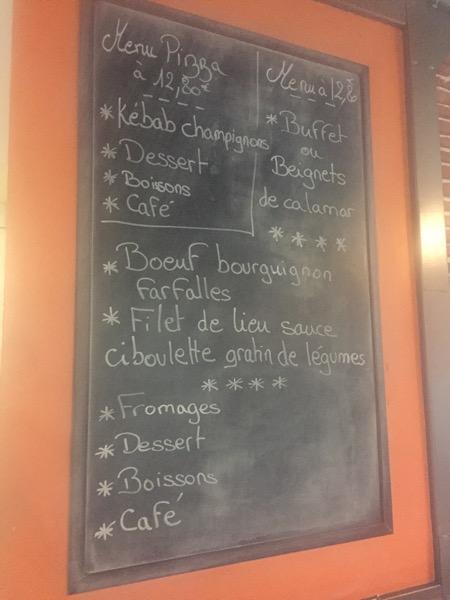 Menu Pizza
à 12,80€
* Kébab champignons
* Dessert
* Boissons
* Café
Menu à 12,€
* Buffet
ou
Beignets
de calamar
* * * *
* Boeuf bourguignon
farfalles
* Filet de lieu sauce
ciboulette gratin de légumes
* * * *
* Fromages
* Dessert
* Boissons
* Café